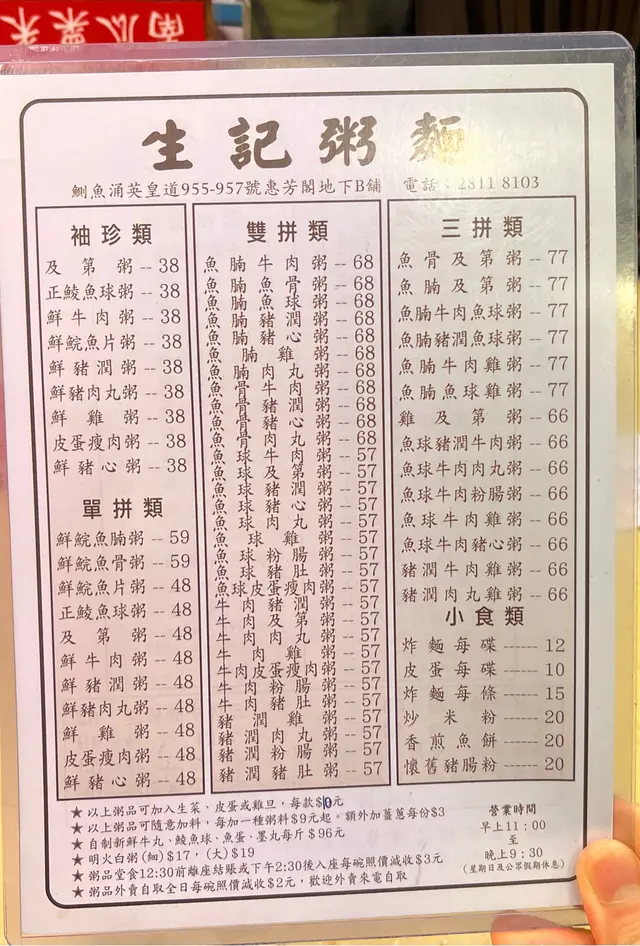 南瓜粟米
生記粥麵
鰂魚涌英皇道955-957號惠芳閣地下B舖 電話:2811 8103
袖珍類
及第粥--38
正鯪魚球粥--38
鮮牛肉粥--38
鮮鯇魚片粥--38
鮮豬潤粥--38
鮮豬肉丸粥--38
鮮雞粥--38
皮蛋瘦肉粥--38
鮮豬心粥--38
單拼類
鮮鯇魚腩粥--59
鮮鯇魚骨粥--59
鮮鯇魚片粥--48
正鯪魚球粥--48
及第粥--48
鮮牛肉粥--48
鮮豬潤粥--48
鮮豬肉丸粥--48
鮮雞粥--48
皮蛋瘦肉粥--48
鮮豬心粥--48
雙拼類
魚腩牛肉粥--68
魚腩魚骨粥--68
魚腩魚球粥--68
魚腩豬潤粥--68
魚腩豬心粥--68
魚腩雞粥--68
魚腩肉丸粥--68
魚骨牛肉粥--68
魚骨豬潤粥--68
魚骨豬心粥--68
魚骨肉丸粥--68
魚球牛肉粥--57
魚球及第粥--57
魚球豬潤粥--57
魚球豬心粥--57
魚球肉丸粥--57
魚球雞粥--57
魚球粉腸粥--57
魚球豬肚粥--57
魚球皮蛋瘦肉粥--57
牛肉豬潤粥--57
牛肉及第粥--57
牛肉肉丸粥--57
牛肉雞粥--57
牛肉皮蛋瘦肉粥--57
牛肉粉腸粥--57
牛肉豬肚粥--57
豬潤雞粥--57
豬潤肉丸粥--57
豬潤粉腸粥--57
豬潤豬肚粥--57
三拼類
魚骨及第粥--77
魚腩及第粥--77
魚腩牛肉魚球粥--77
魚腩豬潤魚球粥--77
魚腩牛肉雞粥--77
魚腩魚球雞粥--77
雞及第粥--66
魚球豬潤牛肉粥--66
魚球牛肉肉丸粥--66
魚球牛肉粉腸粥--66
魚球牛肉雞粥--66
魚球牛肉豬心粥--66
豬潤牛肉雞粥--66
豬潤肉丸雞粥--66
小食類
炸麵每碟------12
皮蛋每碟------10
炸麵每條------15
炒米粉------20
香煎魚餅------20
懷舊豬腸粉------20
★以上粥品可加入生菜、皮蛋或雞旦,每款$10元
★以上粥品可隨意加料,每加一種粥料$9元起。額外加薑蔥每份$3
★自制新鮮牛丸、鯪魚球、魚蛋、墨丸每斤$96元
★明火白粥(細)$17,(大)$19
★粥品堂食12:30前離座結賬或下午2:30後入座每碗照價減收$3元
★粥品外賣自取全日每碗照價減收$2元,歡迎外賣來電自取
營業時間
早上11:00
至
晚上9:30
(星期日及公眾假期休息)